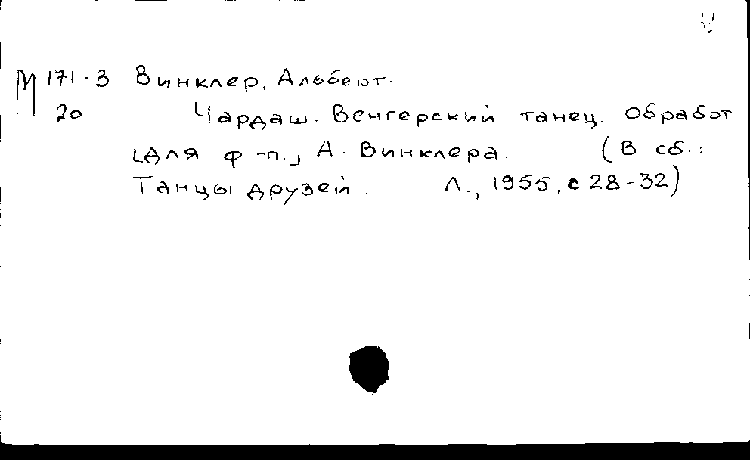 М 171-3 Винклер, Альберт.
20 Чардаш. Венгерский танец. Обработ
[для ф-п., А. Винклера. (В сб.:
Танцы друзей. Л., 1955, с 28-32)